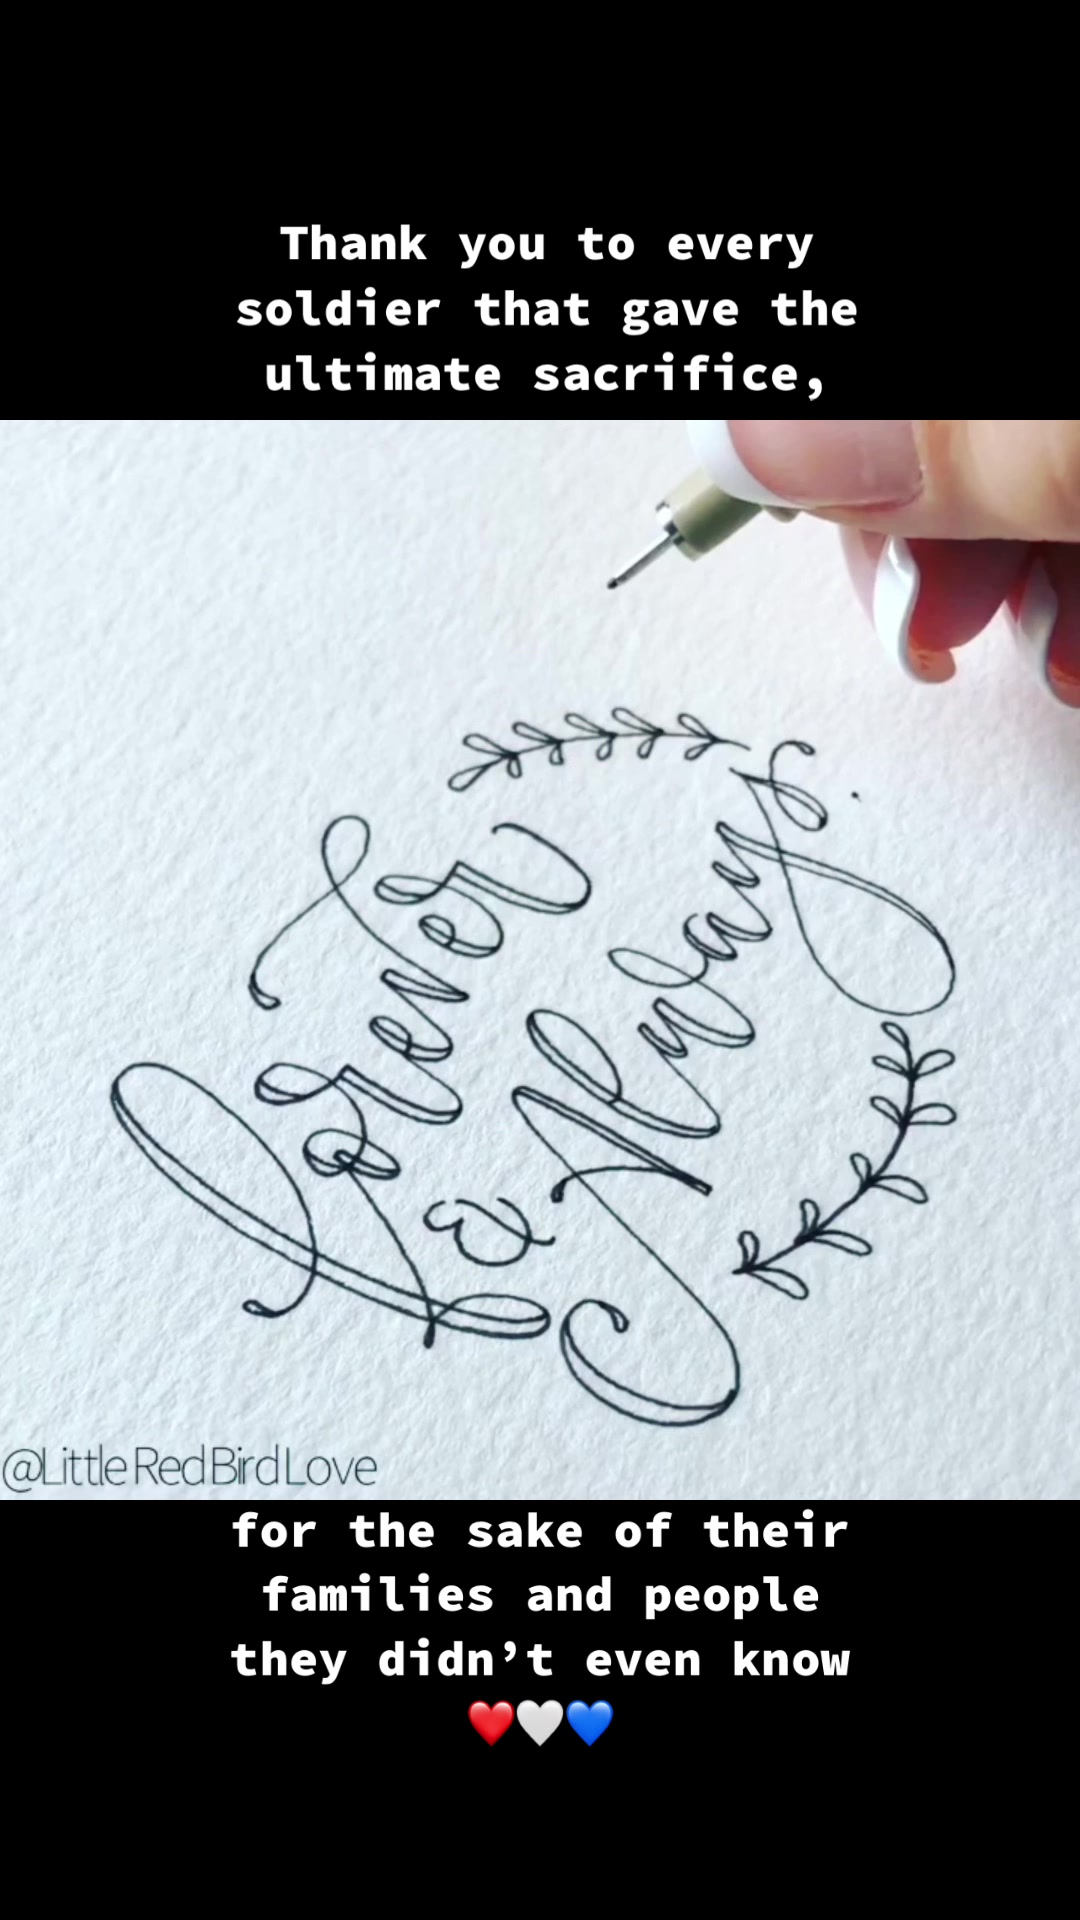 Thank you to every
soldier that gave the
ultimate sacrifice,
Forever
& Always.
@LittleRedBirdLove
for the sake of their
families and people
they didn’t even know
❤️🤍💙